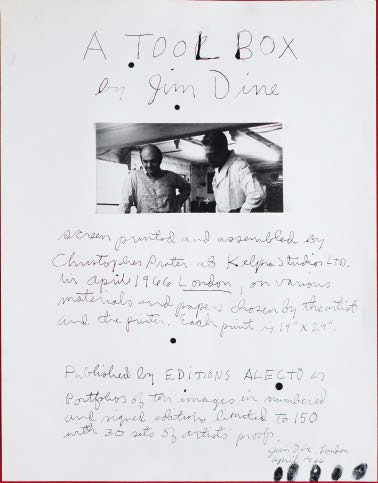 A TOOL BOX
by Jim Dine
screen printed and assembled by
Christopher Prater at Kelpra Studios LTD.
in april 1966 London, on various
materials and papers chosen by the artist
and the printer. Each print is 19" x 24".
Published by EDITIONS ALECTO as
Portfolios of ten images in numbered
and signed editions limited to 150
with 30 sets of artists proofs.
Jim Dine London
april 1966